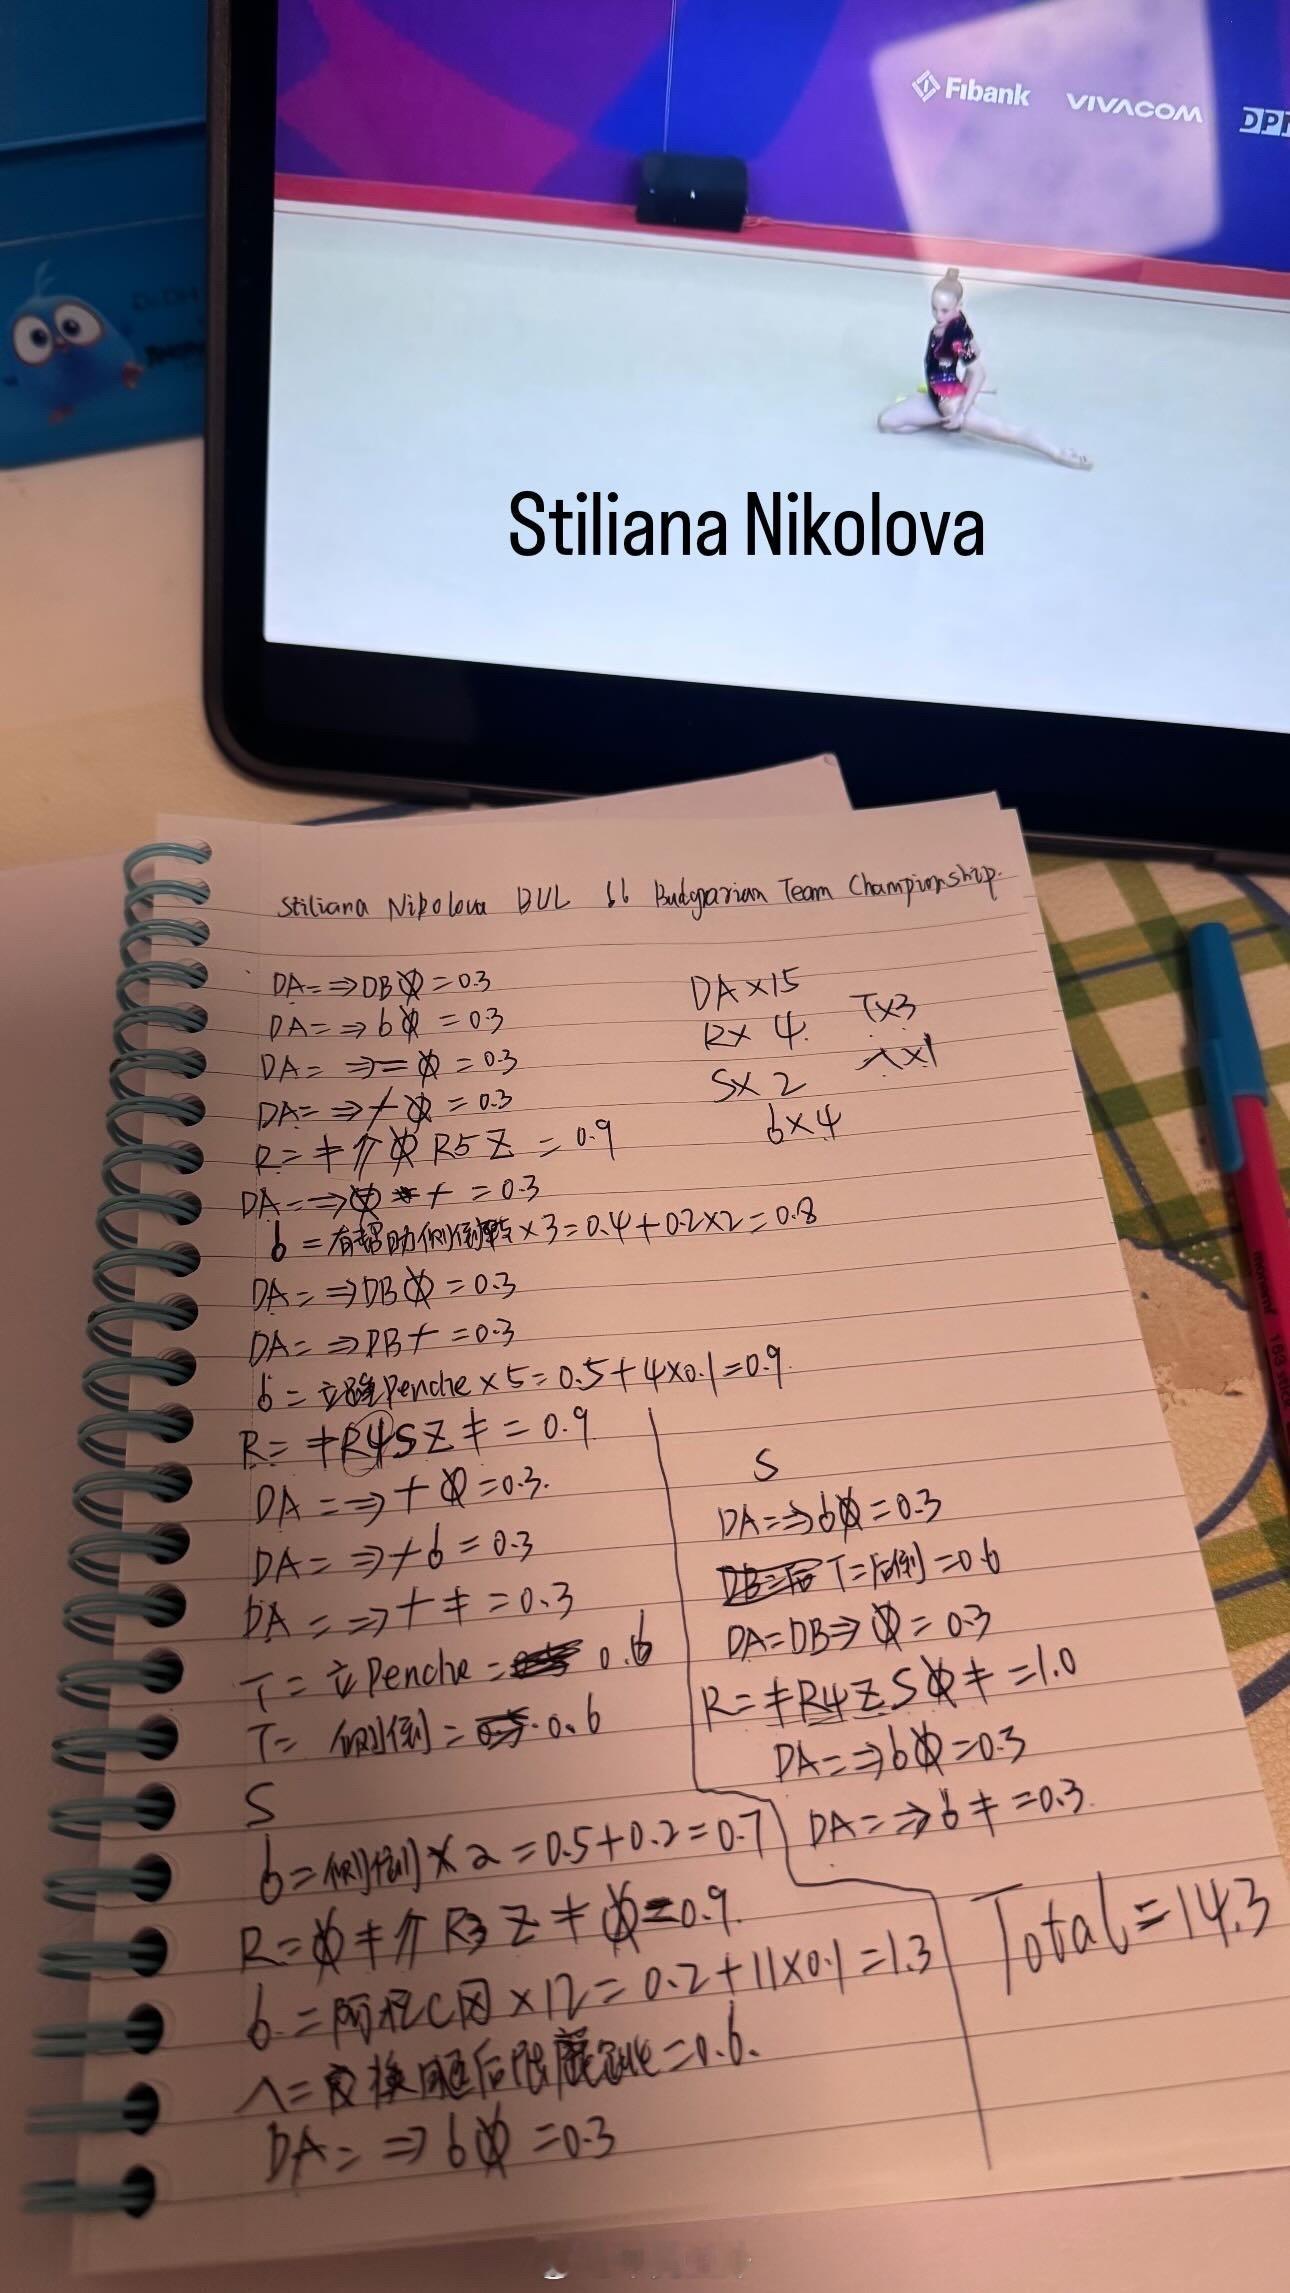 Fibank VIVACOM
Stiliana Nikolova
Stiliana Nikolova BUL Budgarian Team Championship.
DA=⇒DBφ=0.3
DA×15
DA=⇒6φ=0.3
T×3
R×4
DA=⇒=φ=0.3
λ×1
S×2
DA=⇒+φ=0.3
6×4
R=≠介φR5Z=0.9
DA=⇒φ+=0.3
6=有帮助侧倒转×3=0.4+0.2×2=0.8
DA=⇒DBφ=0.3
DA=⇒DB+=0.3
6=立踵Penche×5=0.5+4×0.1=0.9
R=≠R4SZ≠=0.9
DA=⇒+φ=0.3.
DA=⇒+6=0.3
DA=⇒+≠=0.3
T=立Penche=0.6
T=侧倒=0.6
S
6=侧倒×2=0.5+0.2=0.7
R=φ≠介R3Z≠φ=0.9
6=阿拉C图×12=0.2+11×0.1=1.3
λ=交换腿后屈 =0.6.
DA=⇒6φ=0.3
S
DA=⇒6φ=0.3
T=后倒=0.6
DA=DB⇒φ=0.3
R=≠R4ZSφ≠=1.0
DA=⇒6φ=0.3
DA=⇒6≠=0.3.
Total=14.3
monami 153 stick